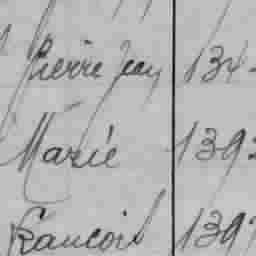 Pierre Jean 134
Marie 139
François 139